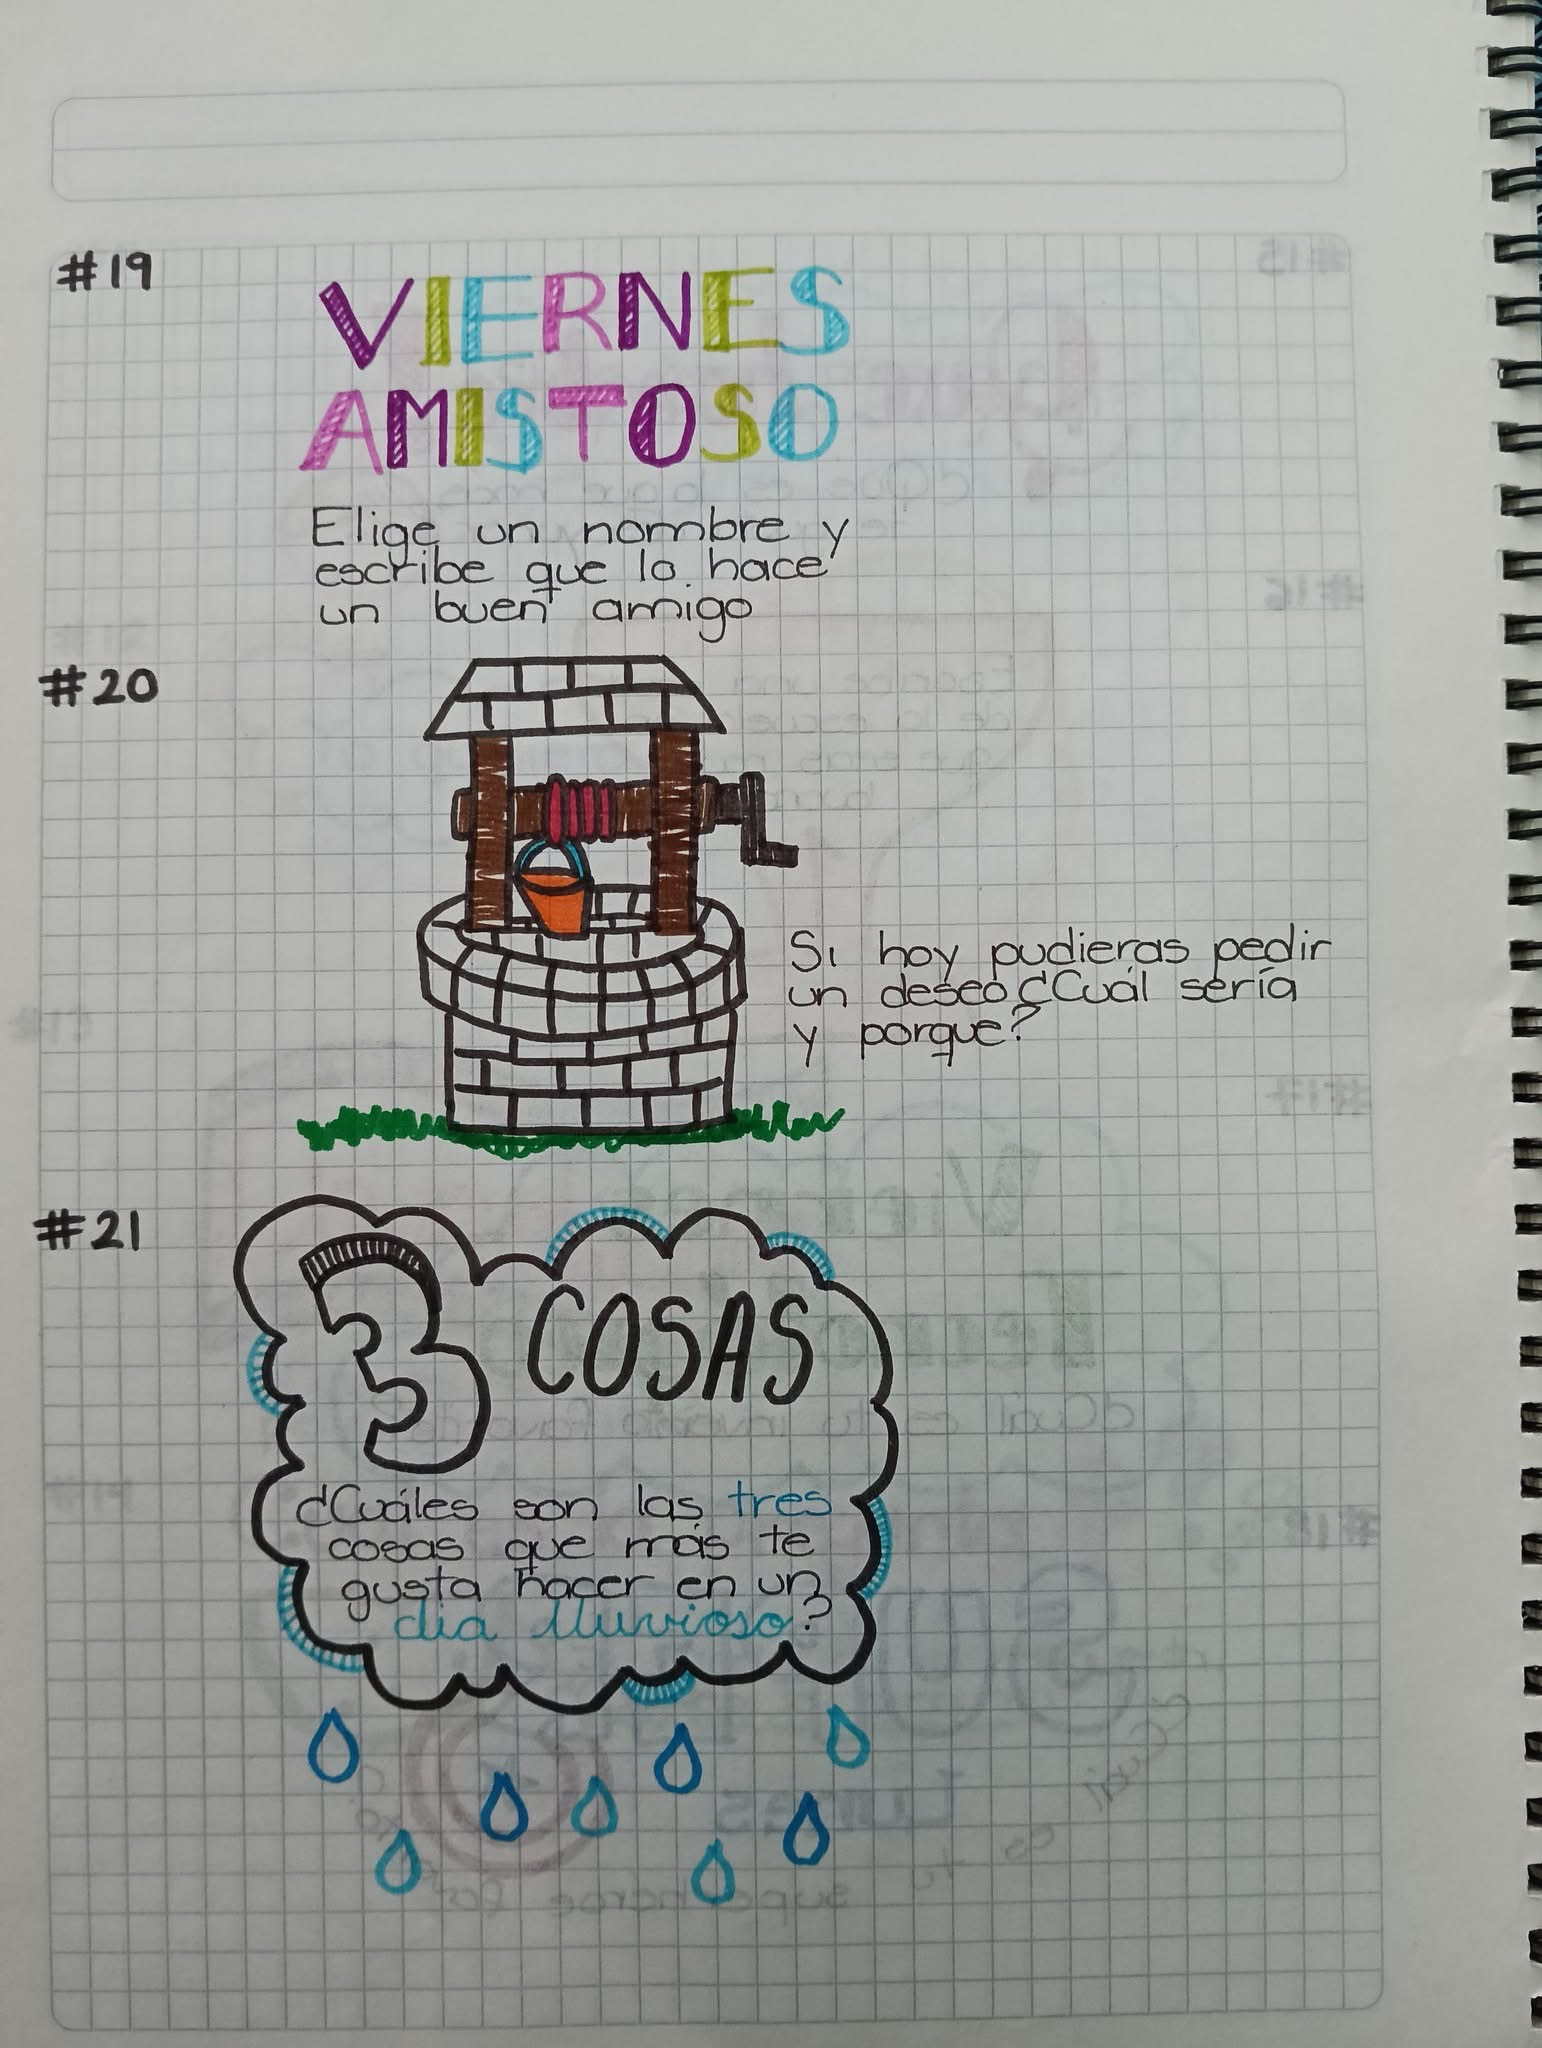 #19
VIERNES
AMISTOSO
Elige un nombre y
escribe que lo hace
un buen amigo
#20
Si hoy pudieras pedir
un deseo ¿Cuál sería
y porque?
#21
3 COSAS
¿Cuáles son las tres
cosas que más te
gusta hacer en un
día lluvioso?